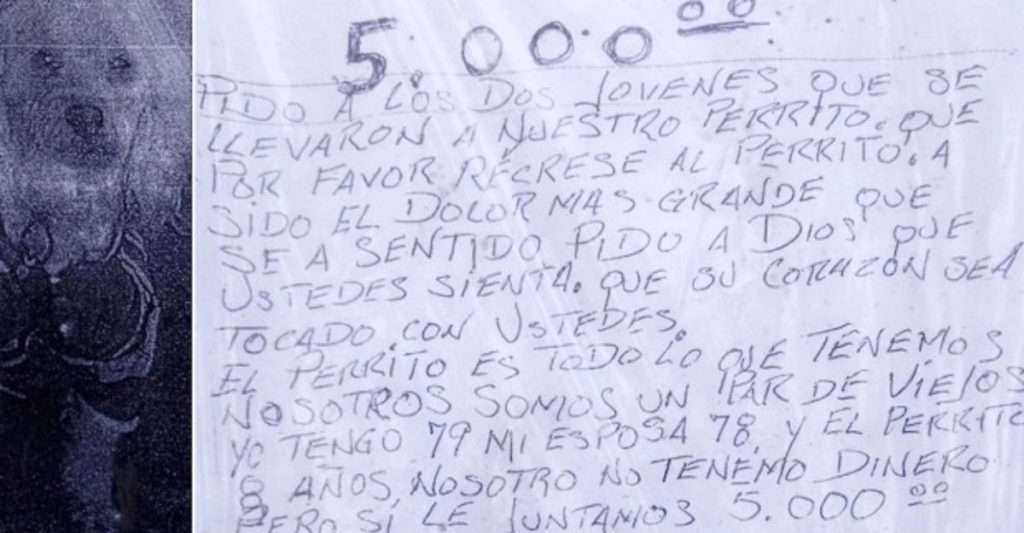 5.000 00
PIDO A LOS DOS JOVENES QUE SE
LLEVARON A NUESTRO PERRITO. QUE
POR FAVOR RECRESE AL PERRITO. A
SIDO EL DOLOR MAS GRANDE QUE
SE A SENTIDO PIDO A DIOS QUE
USTEDES SIENTA. QUE SU CORAZON SEA
TOCADO. CON USTEDES.
EL PERRITO ES TODO LO QUE TENEMOS
NOSOTROS SOMOS UN PAR DE VIEJOS
YO TENGO 79 MI ESPOSA 78. Y EL PERRITO
8 AÑOS, NOSOTRO NO TENEMO DINERO
PERO SI LE JUNTAMOS 5.000 00